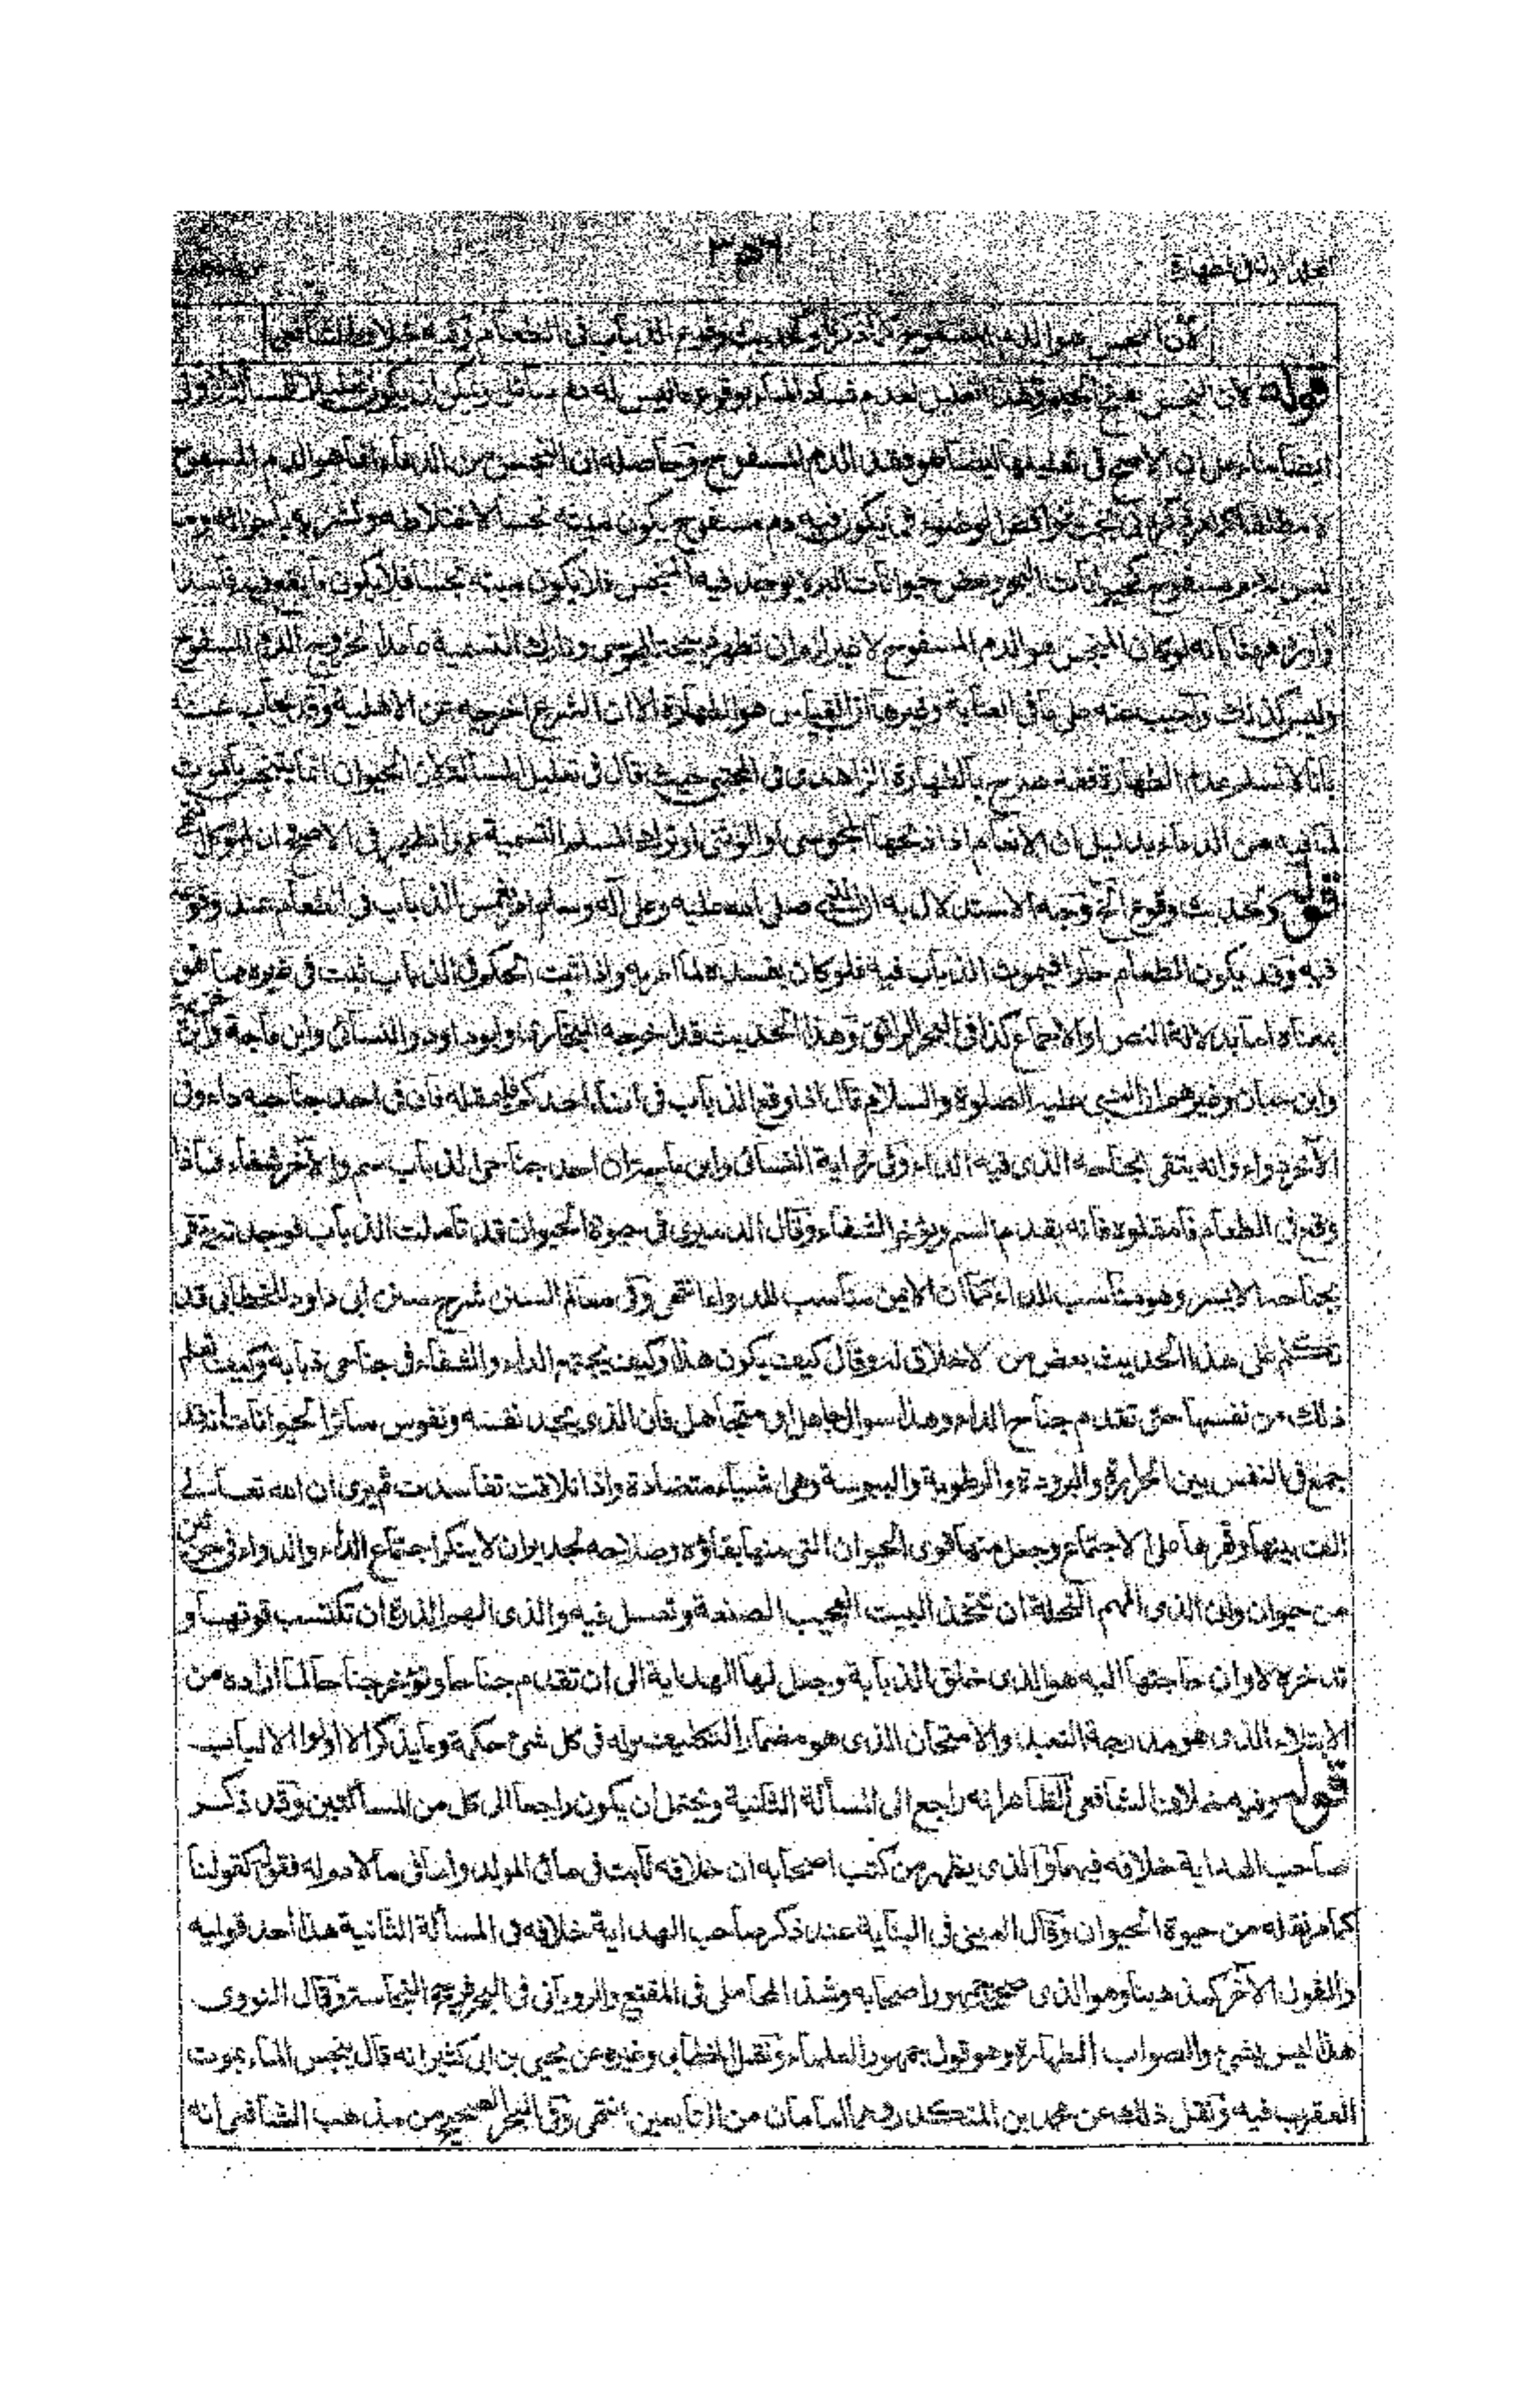 ٣٥٦
لأن المنجس هو الدم المسفوح كما ذكرنا ولحديث وقوع الذباب في الطعام وفيه خلاف الشافعي
قوله لان المنجس بفتح الجيم وهذا تعليل لعدم فساد الماء بوقوع ما ليس له دم سائل ويمكن ان يكون تعليلا للمسألة الاولى
ايضا بناء على ان الاصح في تعليلها ايضا هو فقد الدم المسفوح وحاصله ان المنجس من الدماء انما هو الدم المسفوح
لا مطلقا كما مر في بحث نواقض الوضوء فما يكون فيه دم مسفوح يكون ميتته نجسا لاختلاطه وتشربه باجزائه وما
ليس له دم مسفوح كحيوانات البحر وبعض حيوانات البر لا يوجد فيه المنجس فلا يكون ميتته نجسا فلا يكون ما يقع فيه فاسدا
وأورد ههنا بانه لو كان المنجس هو الدم المسفوح لا غير لزم ان تطهر ذبيحة المجوسي وتارك التسمية عامدا لخروج الدم المسفوح
وليس كذلك وأجيب عنه على ما في العناية وغيرها ان القياس هو الطهارة الا ان الشرع اخرجه عن الاهلية وقد يجاب عنه
بانا لا نسلم عدم الطهارة فقد صرح بالطهارة الزاهدى في المجتبى حيث قال في تعليل المسألة لان الحيوان انما يتنجس بالموت
لما فيه من الدماء بدليل ان الانعام اذا ذبحها المجوسى او الوثنى او ترك المسلم التسمية عمدا تطهر في الاصح وان لم تؤكل
قوله ولحديث وقوع الخ وجه الاستدلال به ان النبي صلى الله عليه وعلى آله وسلم امر بغمس الذباب في الطعام عند وقوعه
فيه وقد يكون الطعام حارا فيموت الذباب فيه فلو كان يفسده لما امر به واذا ثبت الحكم في الذباب ثبت في غيره مما هو
بمعناه اما بدلالة النص او الاجماع كذا في البحر الرائق وهذا الحديث قد اخرجه البخارى وابو داود والنسائي وابن ماجة وابن خزيمة
وابن حبان وغيرهم ان النبي عليه الصلوة والسلام قال اذا وقع الذباب في اناء احدكم فامقله فان في احد جناحيه داء وفى
الآخر دواء وانه يتقى بجناحه الذى فيه الداء وفى رواية النسائى وابن ماجة ان احد جناحى الذباب سم والآخر شفاء فاذا
وقع فى الطعام فامقلوه فانه يقدم السم ويؤخر الشفاء وقال الدميرى فى حيوة الحيوان قد تأملت الذباب فوجدته يتقى
بجناحه الايسر وهو مناسب للداء كما ان الايمن مناسب للدواء انتهى وفى معالم السنن شرح سنن ابى داود للخطابى قد
تكلم على هذا الحديث بعض من لا خلاق له وقال كيف يكون هذا وكيف يجتمع الداء والشفاء فى جناحى ذبابة وكيف تعلم
ذلك من نفسها حتى تقدم جناح الداء وهذا سوال جاهل او متجاهل فان الذى يجد نفسه ونفوس سائر الحيوانات قد
جمع فى النفس بين الحرارة والبرودة والرطوبة واليبوسة وهى اشياء متضادة واذا تلاقت تفاسدت ثم يرى ان الله تعالى
الف بينها وقهرها على الاجتماع وجعل منها قوى الحيوان التى منها بقاؤه وصلاحه لجدير ان لا ينكر اجتماع الداء والدواء فى جزئين
من حيوان وان الذى الهم النحلة ان تتخذ البيت العجيب الصنعة وتعسل فيه والذى الهم الذرة ان تكتسب قوتها و
تدخره لاوان حاجتها اليه هو الذى خلق الذبابة وجعل لها الهداية الى ان تقدم جناحا وتؤخر جناحا لما اراده من
الابتلاء الذى هو مدرجة التعبد والامتحان الذى هو مضمار التكليف وله فى كل شئ حكمة وما يذكر الا اولوا الالباب
قوله وفيه خلاف الشافعى الظاهر انه راجع الى المسألة الثانية ويحتمل ان يكون راجعا الى كل من المسألتين وقد ذكر
صاحب الهداية خلافه فيهما والذى يظهر من كتب اصحابه ان خلافه ثابت فى مائى المولد واما فى ما لا دم له فقوله كقولنا
كما مر نقله من حيوة الحيوان وقال العينى فى البناية عند ذكر صاحب الهداية خلافه فى المسألة الثانية هذا احد قوليه
والقول الآخر كمذهبنا وهو الذى صححه جمهور اصحابه وشذ المحاملى فى المقنع والرويانى فى البحر فرجحا النجاسة وقال النووى
هذا ليس بشئ والصواب الطهارة وهو قول جمهور العلماء ونقل الخطابى وغيره عن يحيى بن ابى كثير انه قال ينجس الماء بموت
العقرب فيه ونقل ذلك عن محمد بن المنكدر وهما امامان من التابعين انتهى وفى البحر الصحيح من مذهب الشافعى انه